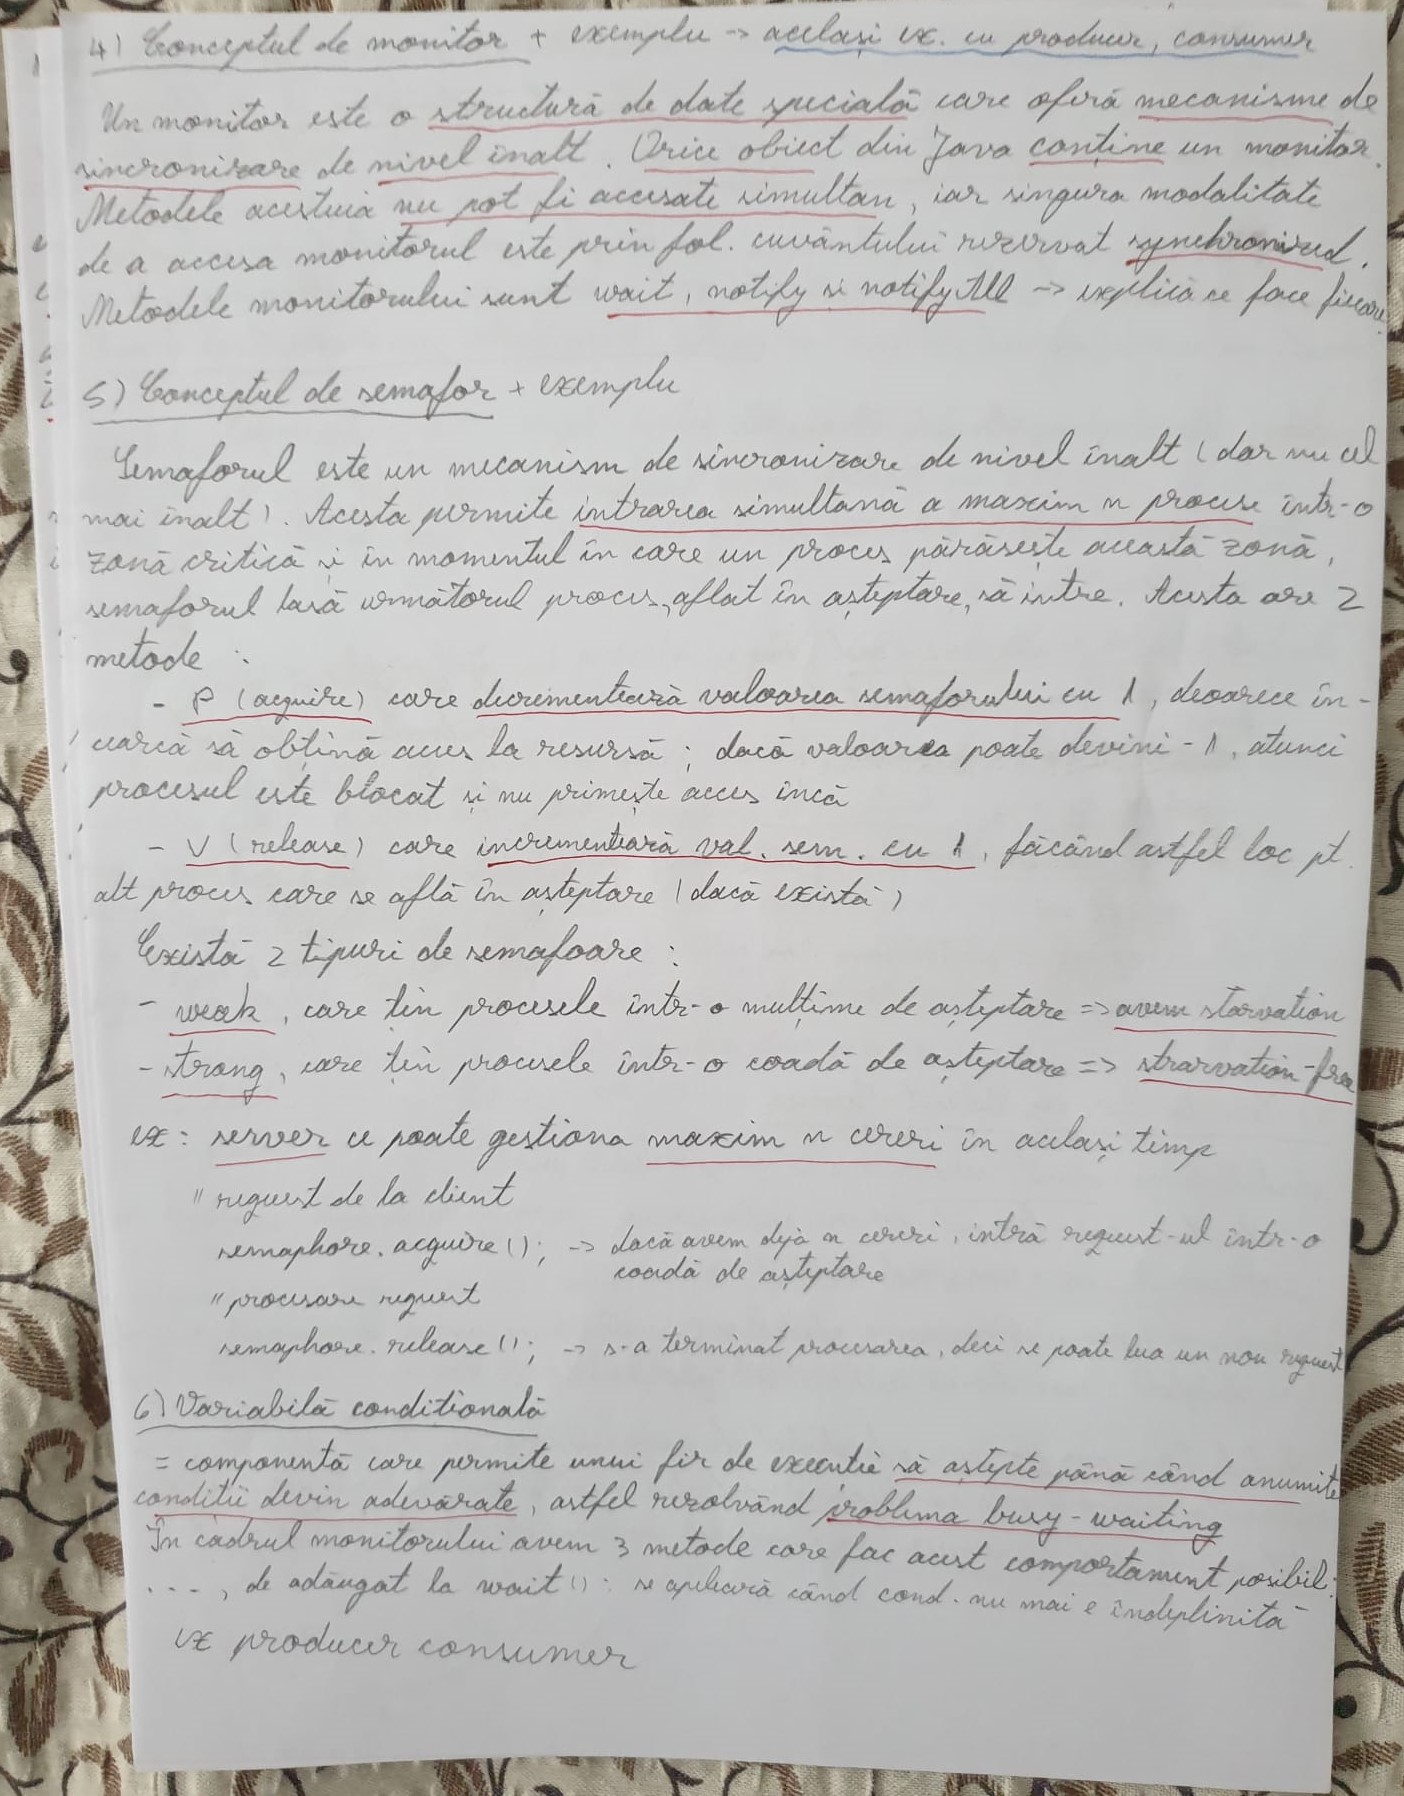 4) Conceptul de monitor + exemplu -> același ex. cu producer, consumer
Un monitor este o structură de date specială care oferă mecanisme de
sincronizare de nivel înalt. Orice obiect din Java conține un monitor.
Metodele acestuia nu pot fi accesate simultan, iar singura modalitate
de a accesa monitorul este prin fol. cuvântului rezervat synchronized.
Metodele monitorului sunt wait, notify si notifyAll -> explică ce face fiecare
5) Conceptul de semafor + exemplu
Semaforul este un mecanism de sincronizare de nivel înalt (dar nu cel
mai înalt). Acesta permite intrarea simultană a maxim n procese într-o
zonă critică și în momentul în care un proces părăsește această zonă,
semaforul lasă următorul proces, aflat în așteptare, să intre. Acesta are 2
metode :
- P (acquire) care decrementează valoarea semaforului cu 1, deoarece în-
cearcă să obțină acces la resursă ; dacă valoarea poate deveni -1, atunci
procesul este blocat și nu primește acces încă
- V (release) care incrementează val. sem. cu 1, făcând astfel loc pt.
alt proces care se află în așteptare (dacă există)
Există 2 tipuri de semafoare :
- weak, care țin procesele într-o mulțime de așteptare => avem starvation
- strong, care țin procesele într-o coadă de așteptare => strarvation-free
ex : server ce poate gestiona maxim n cereri în același timp
// request de la client
semaphore.acquire(); -> dacă avem deja n cereri, intră request-ul într-o
coadă de așteptare
// procesare request
semaphore.release(); -> s-a terminat procesarea, deci se poate lua un nou request
6) Variabilă condițională
= componentă care permite unui fir de execuție să aștepte până când anumite
condiții devin adevărate, astfel rezolvând problema busy-waiting
În cadrul monitorului avem 3 metode care fac acest comportament posibil:
..., de adăugat la wait() : se apelează când cond. nu mai e îndeplinită
ex producer consumer